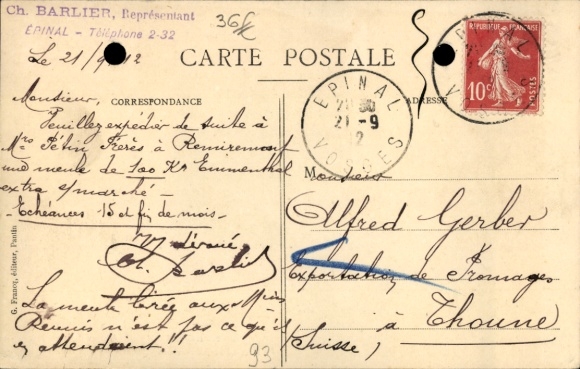 Ch. BARLIER, Représentant
ÉPINAL - Téléphone 2-32
36
Le 21/9 12
CARTE POSTALE
CORRESPONDANCE
ADRESSE
Monsieur,
Veuillez expédier de suite à
Mrs Pétin Frères à Remiremont
une meule de 100 Ks Emmenthal
extra s/marché -
Echéances 15 et fin de mois -
Vy dévoué
Ch. Barlier
La meule livrée aux Mins
Réunis n'est pas ce qu'ils
en attendaient !!
G. Francq, éditeur, Pantin
93
EPINAL
21 - 9
12
VOSGES
RÉPUBLIQUE FRANÇAISE
10c
POSTES
Monsieur
Alfred Gerber
Exportation de Fromages
à Thoune
(Suisse)